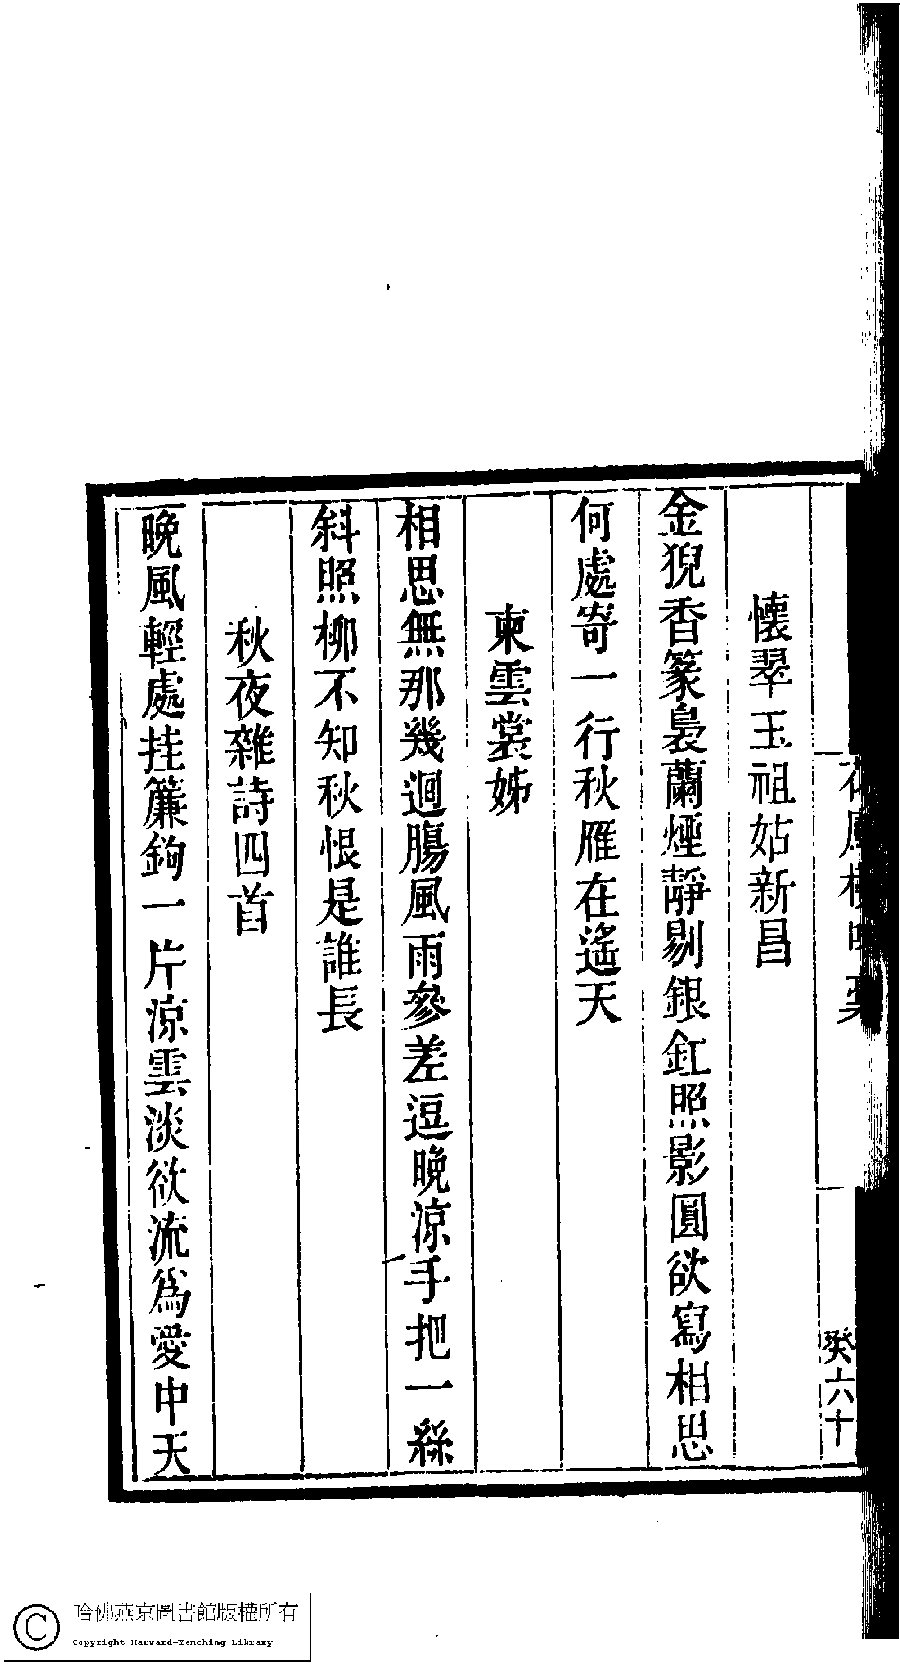 癸六十
懷翠玉祖姑新昌
金猊香篆裊蘭煙靜剔銀釭照影圓欲寫相思
何處寄一行秋雁在遙天
柬雲裳姊
相思無那幾迴腸風雨參差逗晚涼手把一絲
斜照柳不知秋恨是誰長
秋夜雜詩四首
晚風輕處挂簾鉤一片涼雲淡欲流爲愛中天
哈佛燕京圖書館版權所有
Copyright Harvard-Yenching Library